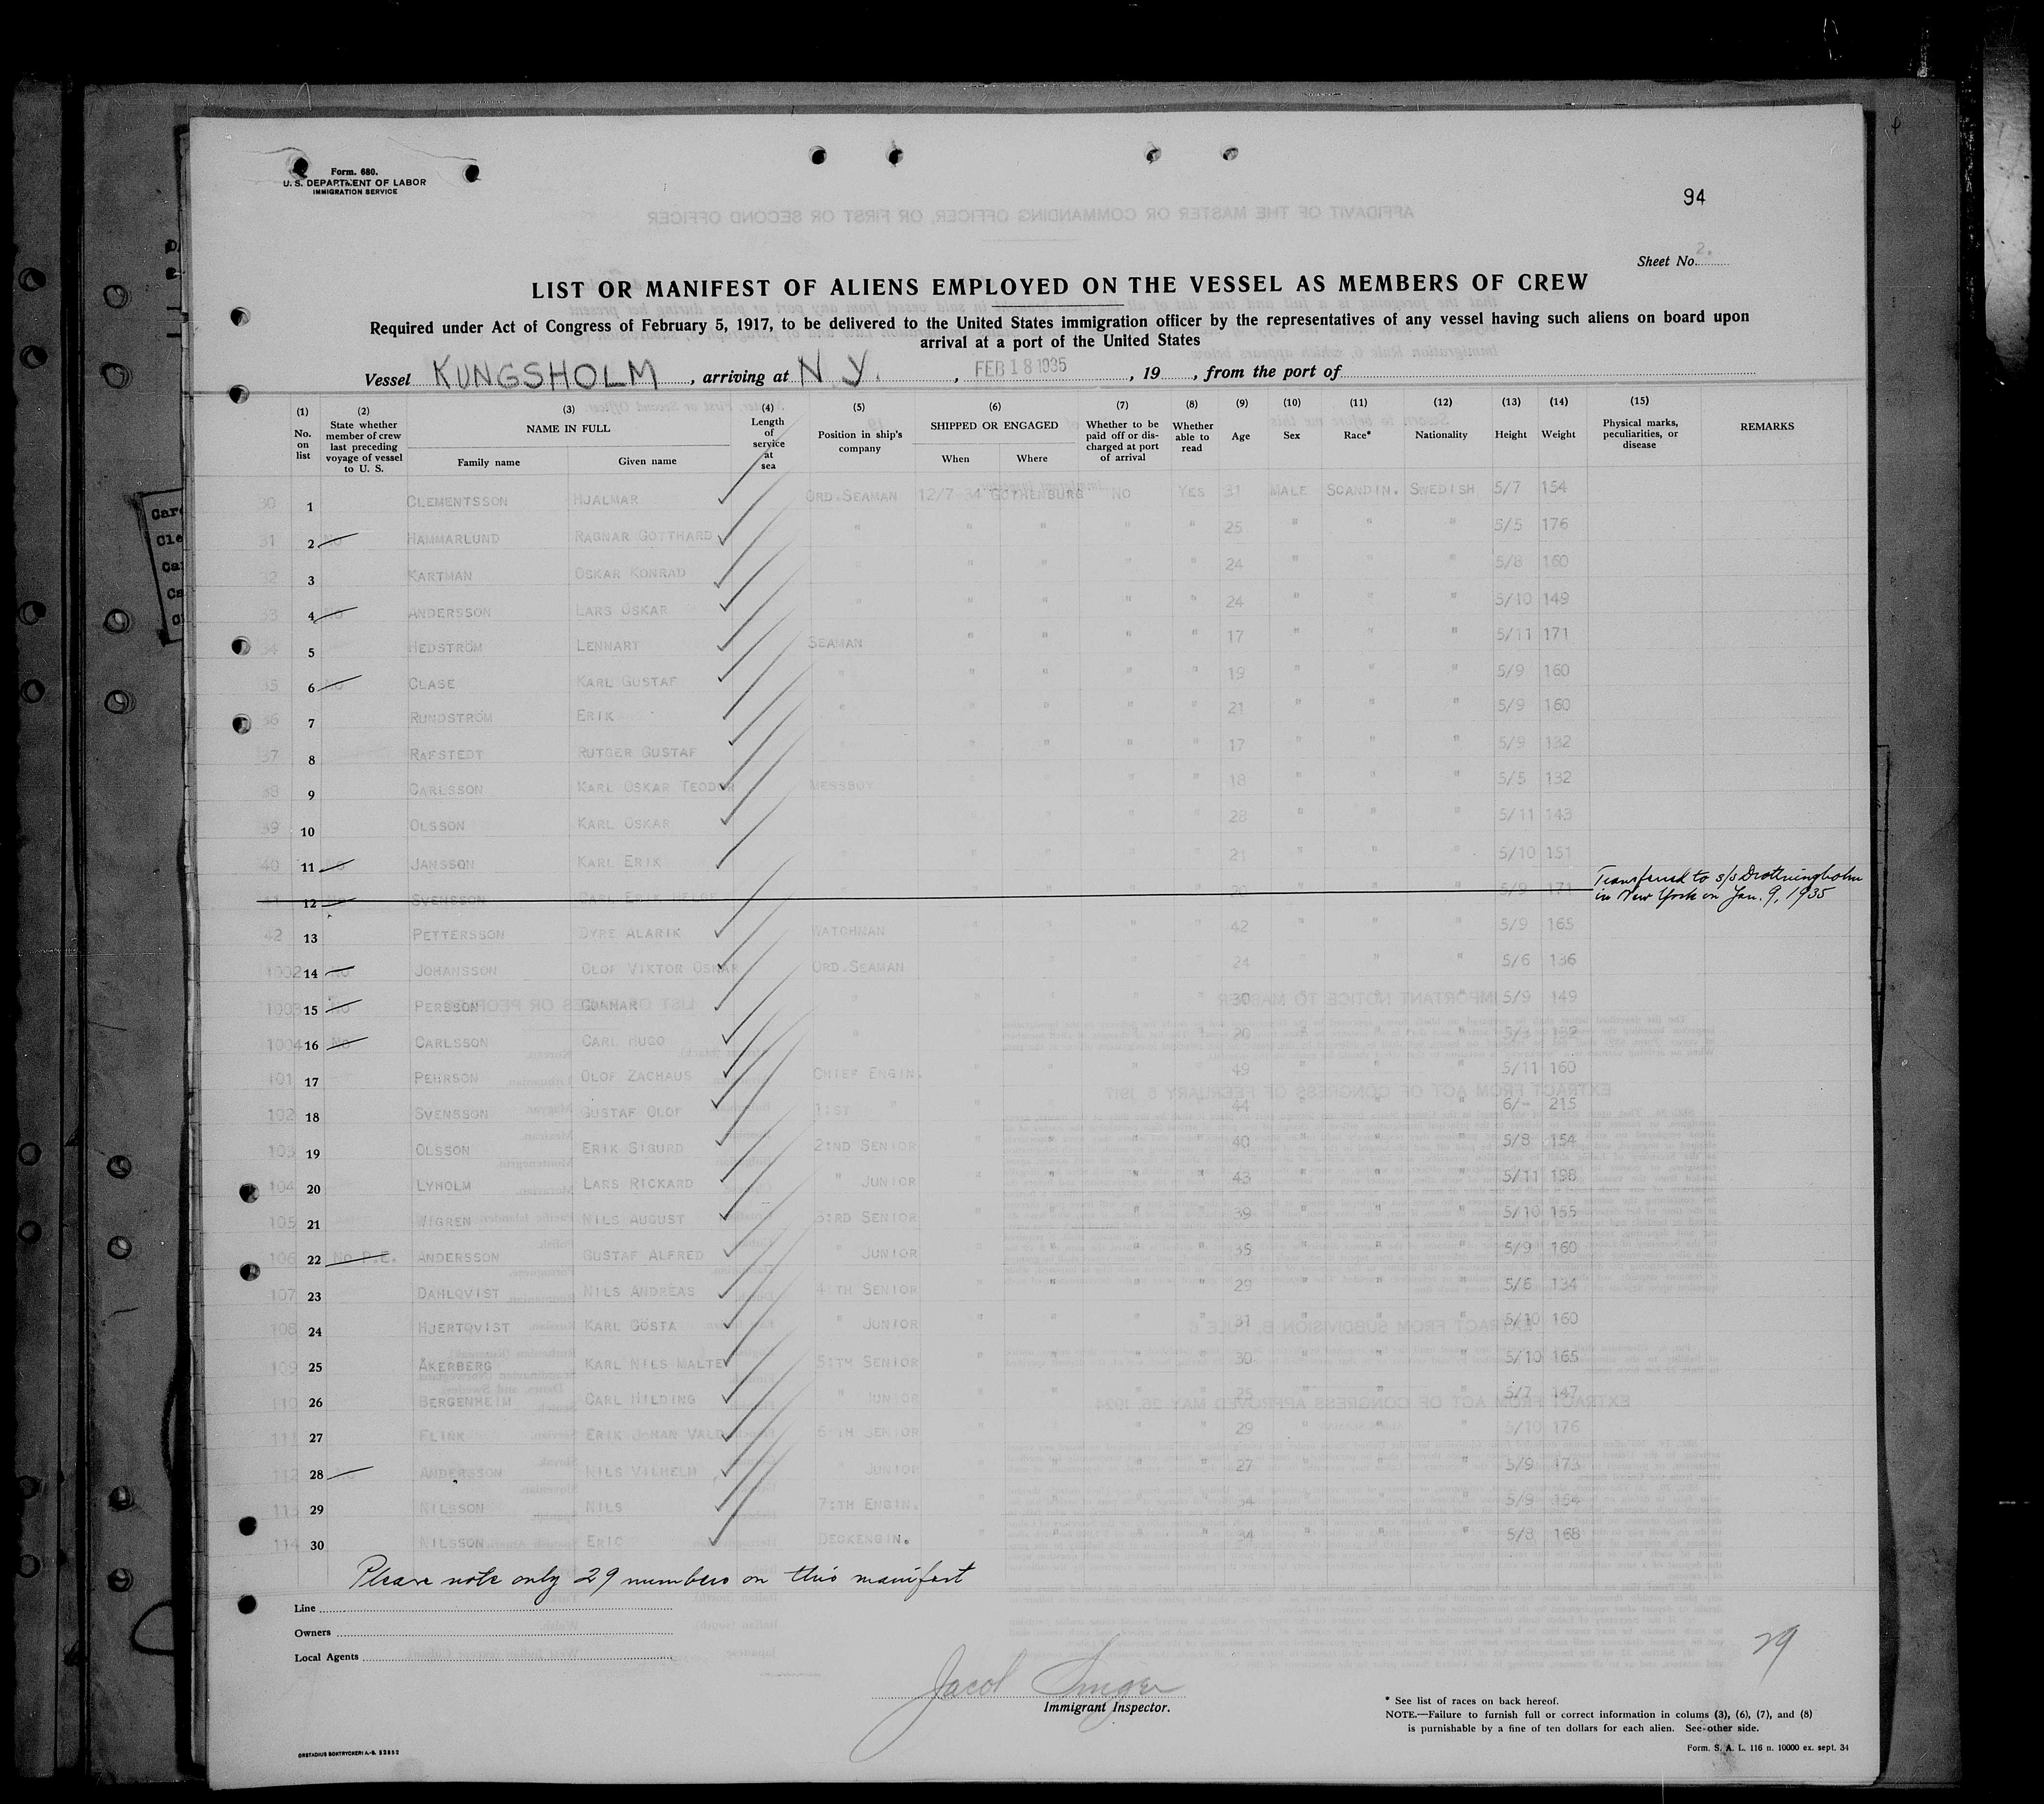 Form. 680.
U. S. DEPARTMENT OF LABOR
IMMIGRATION SERVICE
94
Sheet No. 2.
LIST OR MANIFEST OF ALIENS EMPLOYED ON THE VESSEL AS MEMBERS OF CREW
Required under Act of Congress of February 5, 1917, to be delivered to the United States immigration officer by the representatives of any vessel having such aliens on board upon
arrival at a port of the United States
Vessel KUNGSHOLM, arriving at N.Y., FEB 18 1935, 19, from the port of
(1) No. on list (2) State whether member of crew last preceding voyage of vessel to U. S. (3) NAME IN FULL Family name Given name (4) Length of service at sea (5) Position in ship's company (6) SHIPPED OR ENGAGED When Where (7) Whether to be paid off or discharged at port of arrival (8) Whether able to read (9) Age (10) Sex (11) Race* (12) Nationality (13) Height (14) Weight (15) Physical marks, peculiarities, or disease REMARKS
30 1 CLEMENTSSON HJALMAR ORD.SEAMAN 12/7-34 GOTHENBURG NO YES 31 MALE SCANDIN. SWEDISH 5/7 154
31 2 NO HAMMARLUND RAGNAR GOTTHARD " " " " " 25 " " " 5/5 176
32 3 KARTMAN OSKAR KONRAD " " " " " 24 " " " 5/8 160
33 4 NO ANDERSSON LARS OSKAR " " " " " 24 " " " 5/10 149
34 5 HEDSTRÖM LENNART SEAMAN " " " " 17 " " " 5/11 171
35 6 NO CLASE KARL GUSTAF " " " " " 19 " " " 5/9 160
36 7 RUNDSTRÖM ERIK " " " " " 21 " " " 5/9 160
37 8 RAFSTEDT RUTGER GUSTAF " " " " " 17 " " " 5/9 132
38 9 CARLSSON KARL OSKAR TEODOR MESSBOY " " " " 18 " " " 5/5 132
39 10 OLSSON KARL OSKAR " " " " " 28 " " " 5/11 143
40 11 NO JANSSON KARL ERIK " " " " " 21 " " " 5/10 151
41 12 SVENSSON CARL ERIK HELGE 20 5/9 171 Transferred to s/s Drottningholm
in New York on Jan. 9, 1935
42 13 PETTERSSON DYRE ALARIK WATCHMAN " " " " 42 " " " 5/9 165
1002 14 NO JOHANSSON OLOF VIKTOR OSKAR ORD.SEAMAN " " " " 24 " " " 5/6 136
1003 15 NO PERSSON GUNNAR " " " " " 30 " " " 5/9 149
1004 16 NO CARLSSON CARL HUGO " " " " " 20 " " " 132
101 17 PEHRSON OLOF ZACHAUS CHIEF ENGIN. " " " " 49 " " " 5/11 160
102 18 SVENSSON GUSTAF OLOF 1:ST " " " " " 44 " " " 6/- 215
103 19 OLSSON ERIK SIGURD 2:ND SENIOR " " " " 40 " " " 5/8 154
104 20 LYHOLM LARS RICKARD " JUNIOR " " " " 43 " " " 5/11 198
105 21 WIGREN NILS AUGUST 3:RD SENIOR " " " " 39 " " " 5/10 165
106 22 NO P.E. ANDERSSON GUSTAF ALFRED " JUNIOR " " " " 35 " " " 5/9 160
107 23 DAHLQVIST NILS ANDREAS 4:TH SENIOR " " " " 29 " " " 5/6 134
108 24 HJERTQVIST KARL GÖSTA " JUNIOR " " " " 31 " " " 5/10 160
109 25 ÅKERBERG KARL NILS MALTE 5:TH SENIOR " " " " 30 " " " 5/10 165
110 26 BERGENHEIM CARL HILDING " JUNIOR " " " " 25 " " " 5/7 147
111 27 FLINK ERIK JOHAN VALD 6:TH SENIOR " " " " 29 " " " 5/10 176
112 28 NO ANDERSSON NILS VILHELM " JUNIOR " " " " 27 " " " 5/9 173
113 29 NILSSON NILS 7:TH ENGIN. " " " " 34 " " " 5/9 154
114 30 NILSSON ERIC DECKENGIN. " " " " 34 " " " 5/8 168
Please note only 29 numbers on this manifest
Line
Owners
Local Agents
29
Jacob Singer
Immigrant Inspector.
* See list of races on back hereof.
NOTE.—Failure to furnish full or correct information in colums (3), (6), (7), and (8)
is punishable by a fine of ten dollars for each alien. See other side.
ORSTADIUS BOKTRYCKERI A.-B. 52852
Form. S. A. L. 116 n. 10000 ex. sept. 34